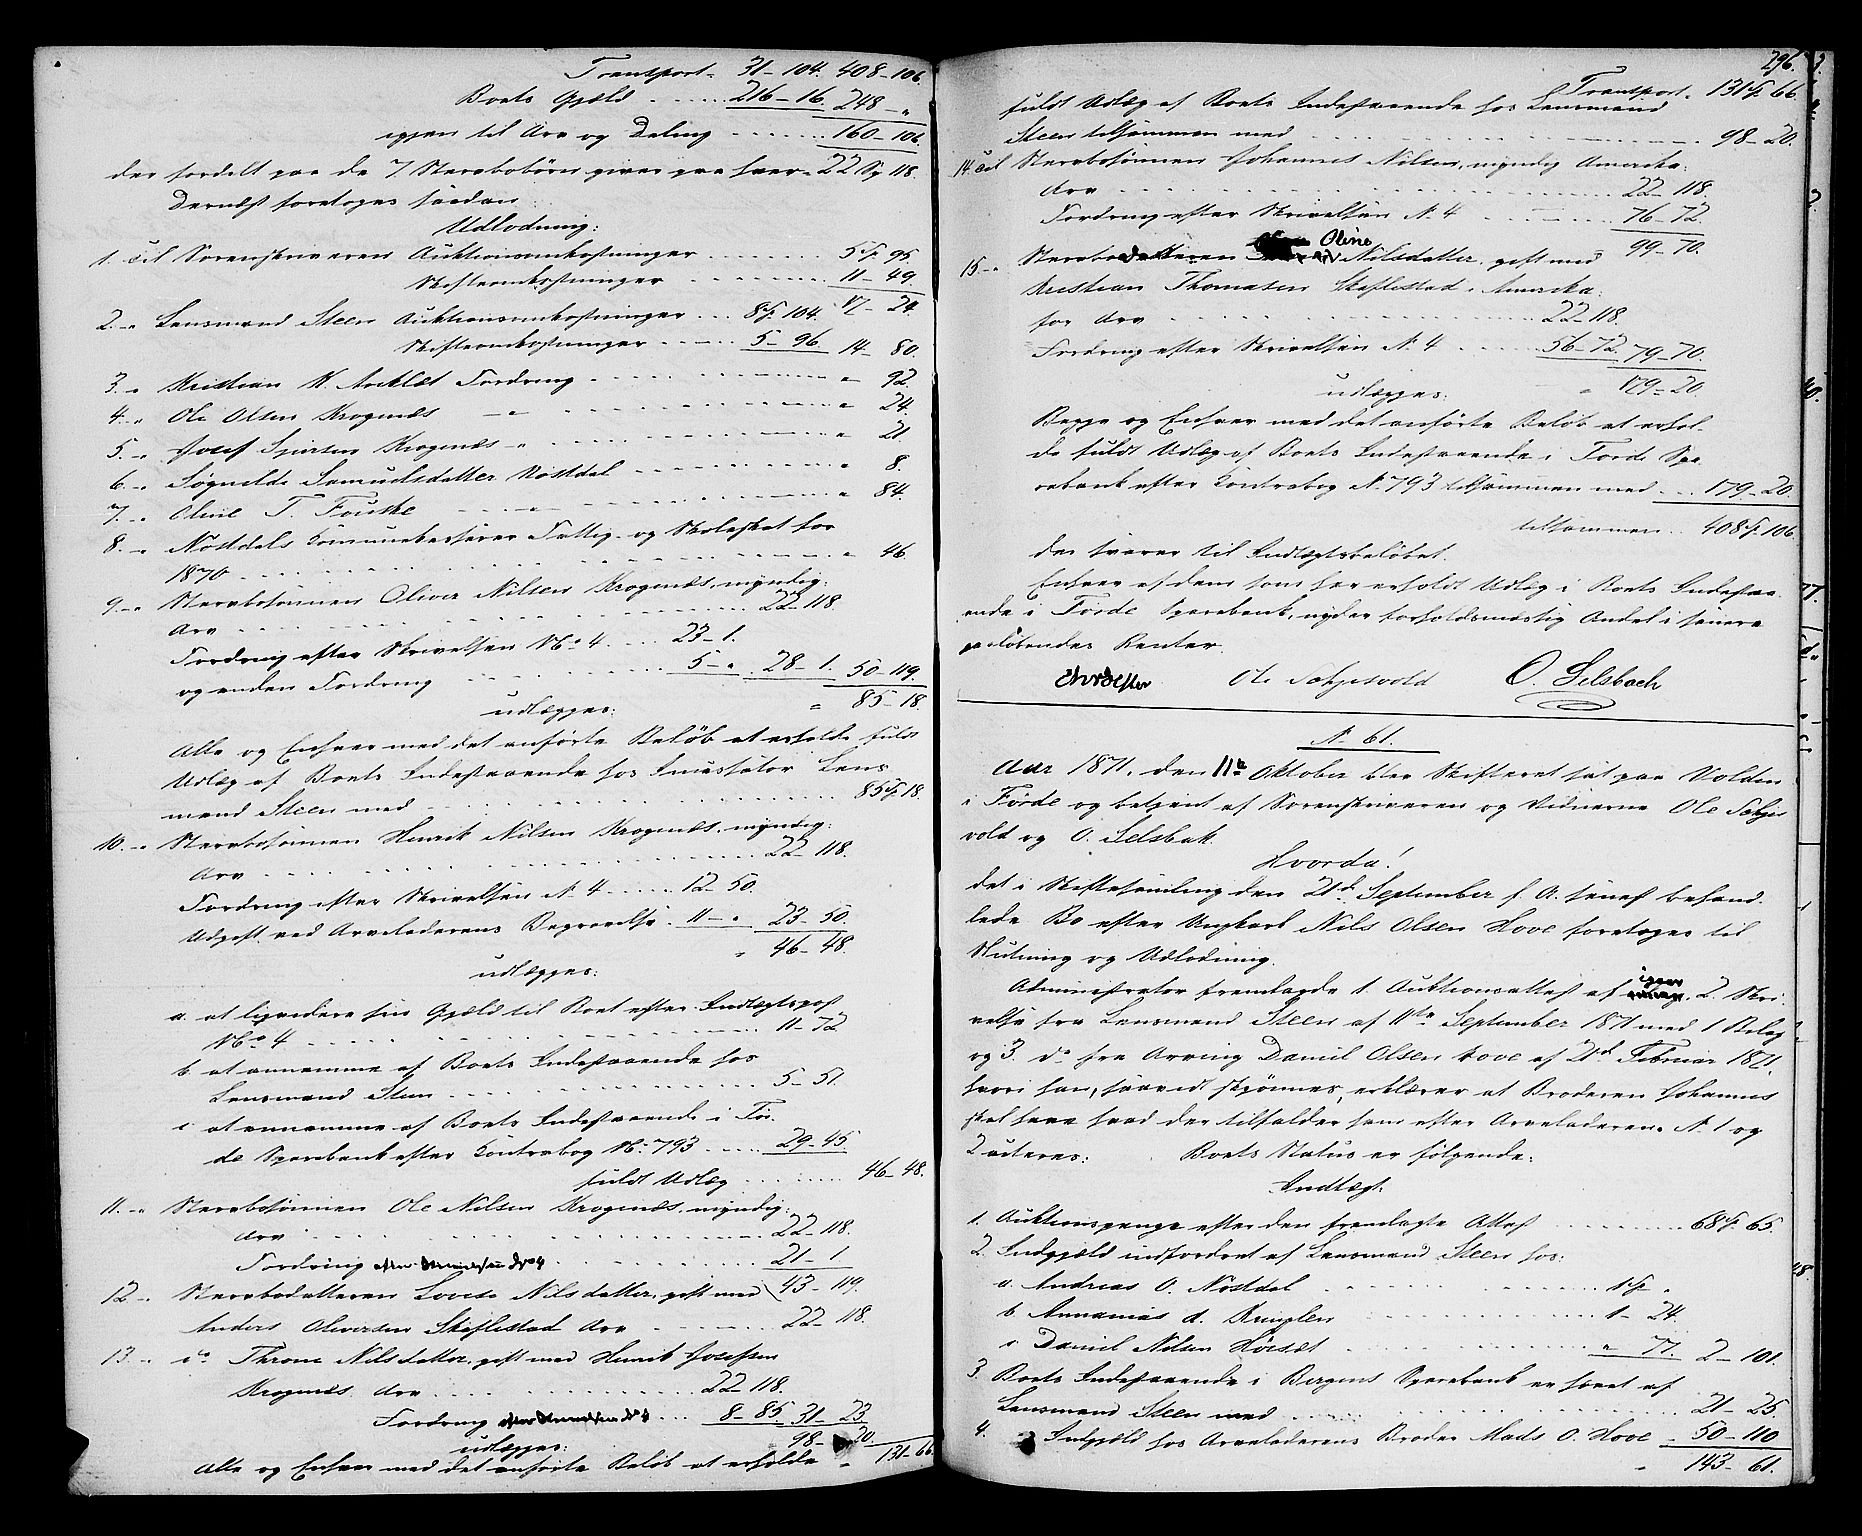 Transport. 31-104. 408-106.
Boets Gjæld ...... 216-16. 248- "
igjen til Arv og Deling ....... 160-106.
der fordelt paa de 7 Stervbobørn giver paa hver. 22 Sp 118.
Dernæst foretoges saadan
Udlodning:
1. til Sorenskriveren Auktionsomkostninger ....... 5 Sp. 95
Skifteomkostninger ....... 11-49.
2. " Lensmand Steen Auktionsomkostninger ... 8 Sp. 104. 17-24
Skifteomkostninger ..... 5-96. 14-80.
3. " Kristian K. Fordring ....... " 92.
4. " Ole Olsen Krognæs -"- ....... " 24.
5. " Josef Sjursen Krognæs -"- ....... " 21
6. " Sögnelde Samuelsdatter Nostdal ....... " 8.
7. " Oline T. Förske ....... " 84.
8. " Nostdals Kommunekasserer Fattig- og Skoleskat for
1870 ....... " 46
9. " Stervbosönnen Oliver Nilsen Krognæs, myndig:
Arv ....... 22-118.
Fordring efter Skrivelsen No 4 .... 23-1.
og anden Fordring ....... 5-". 28-1. 50-119.
udlægges: " 85-18.
Alle og Enhver med det anförte Belöb at erholde fuldt
Udlæg af Boets Indestaaende hos Incassator Lens
mand Steen med ....... 85 Sp 18.
10. " Stervbosönnen Henrik Nilsen Krognæs, myndig:
Arv ....... 22-118.
Fordring efter Skrivelsen N. 4 ...... 12-50.
Udgift ved Arveladerens Begravelse . 11-". 23-50.
" 46-48.
udlægges:
a. at liqvidere sin Gjæld til Boet efter Indtægtspost
No 4 ....... 11-72
b. at annamme af Boets Indestaaende hos
Lensmand Steen ....... 5-51.
c at annamme af Boets Indestaaende i För
de Sparebank efter Contrabog No 793 ..... 29-45
fuldt Udlæg ....... 46-48.
11. " Stervbosönnen Ole Nilsen Krognæs, myndig:
Arv ....... 22-118.
Fordring efter Skrivelsen No 4 ....... 21-1
12. " Stervbodatteren Lovise Nilsdatter, gift med 43-119.
Anders Oliversen Skeflestad Arv ....... 22-118.
13. " do Throne Nilsdatter, gift med Henrik Josefsen
Krognæs. Arv ....... 22-118.
Fordring efter Skrivelsen No 4 ... 8-85 31-23
udlægges: 98-20.
Alle og Enhver med det anförte Belöb at erholde " 131-66
296.
Transport. 131 Sp. 66.
fuldt Udlæg af Boets Indestaaende hos Lensmand
Steen tilsammen med ....... 98-20.
14. til Stervbosönnen Johannes Nilsen, myndig Amerika:
Arv ....... 22-118.
Fordring efter Skrivelsen N. 4 ....... 76-72.
99-70.
Oline
15. " Stervbodatteren Nilsdatter, gift med
Kristian Thomasen Skeflestad, Amerika:
for Arv ....... 22-118.
Fordring efter Skrivelsen N. 4 ...... 56-72. 79-70.
udlægges: " 179-20.
Begge og Enhver med det anförte Belöb at erhol-
de fuldt Udlæg af Boets Indestaaende i Förde Spa
rebank efter Contrabog N. 793 tilsammen med ... 179-20
tilsammen .. 408 Sp. 106.
der svarer til Indtægtsbelöbet.
Enhver af dem som har erholdt Udlæg i Boets Indestaa
ende i Förde Sparebank, nyder forholdsmæssig Andel i senere
paalöbendes Renter.
Ole Sætjesvold O. Selsbach
N. 61.
Aar 1871, den 11te Oktober blev Skifteret sat paa Volden
i Förde og betjent af Sorenskriveren og Vidnerne Ole Sætjes
vold og O. Selsbak.
Hvorda!
det i Skiftesamling den 21d. September f. A. senest behand
lede Bo efter Ungkarl Nils Olsen Hove foretoges til
Slutning og Udlodning.
igaar
Administrator fremlagde 1. Auktionsattest af , 2. Skri
velse fra Lensmand Steen af 11te September 1871 med 1 Belag
og 3. do fra Arving Daniel Olsen Hove af 21d Februar 1871,
hvori han, saavidt skjönnes, erklærer at Broderen Johannes
skal have hvad der tilfalder ham efter Arveladeren. N. 1 og
2 acteres: Boets Status er fölgende:
Indtægt.
1. Auktionspenge efter den fremlagte Attest ....... 68 Sp. 65.
2. Indgjæld indfordret af Lensmand Steen hos:
a. Andreas O. Nostdal ....... 1 Sp "
b. Annanias A. Ringlen ....... 1-24.
c Daniel Nilsen Hörsæt ....... " 77. 2-101.
3. Boets Indestaaende i Bergens Sparebank er hævet af
Lensmand Steen med ....... 21-25.
4. Indgjæld hos Arveladerens Broder Mads O. Hove . 50-110
" 143-61.